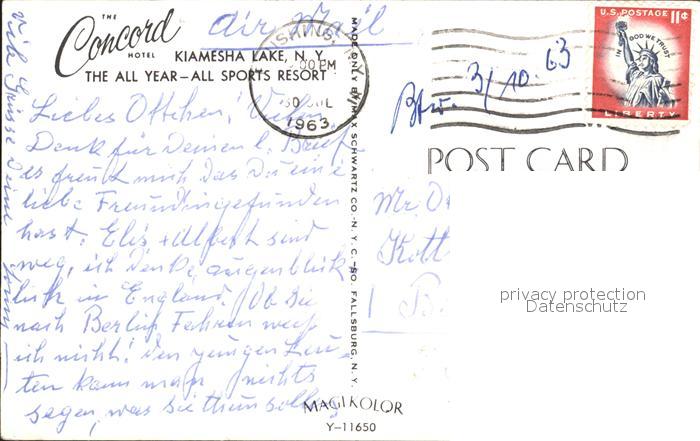 THE
Concord
HOTEL
KIAMESHA LAKE, N. Y.
THE ALL YEAR—ALL SPORTS RESORT
Air Mail
1963
U.S. POSTAGE 11¢
IN GOD WE TRUST
LIBERTY
3/10. 63
POST CARD
Liebes Ottchen, Vielen
Dank für Deinen l. Brief
es freut mich das Du eine
liebe Freundin gefunden
hast. Elis + Albert sind
weg, ich denke augenblick
lich in England. Ob Sie
nach Berlin Fahren weis
ich nicht! Den jungen Leu-
ten kann man nichts
sagen, was sie thun sollen
Viele Grüsse Deine
MADE ONLY BY MAX SCHWARTZ CO. N. Y. C.—SO. FALLSBURG, N. Y.
Mr. O
Kott
1 B
privacy protection
Datenschutz
MAGIKOLOR
Y-11650